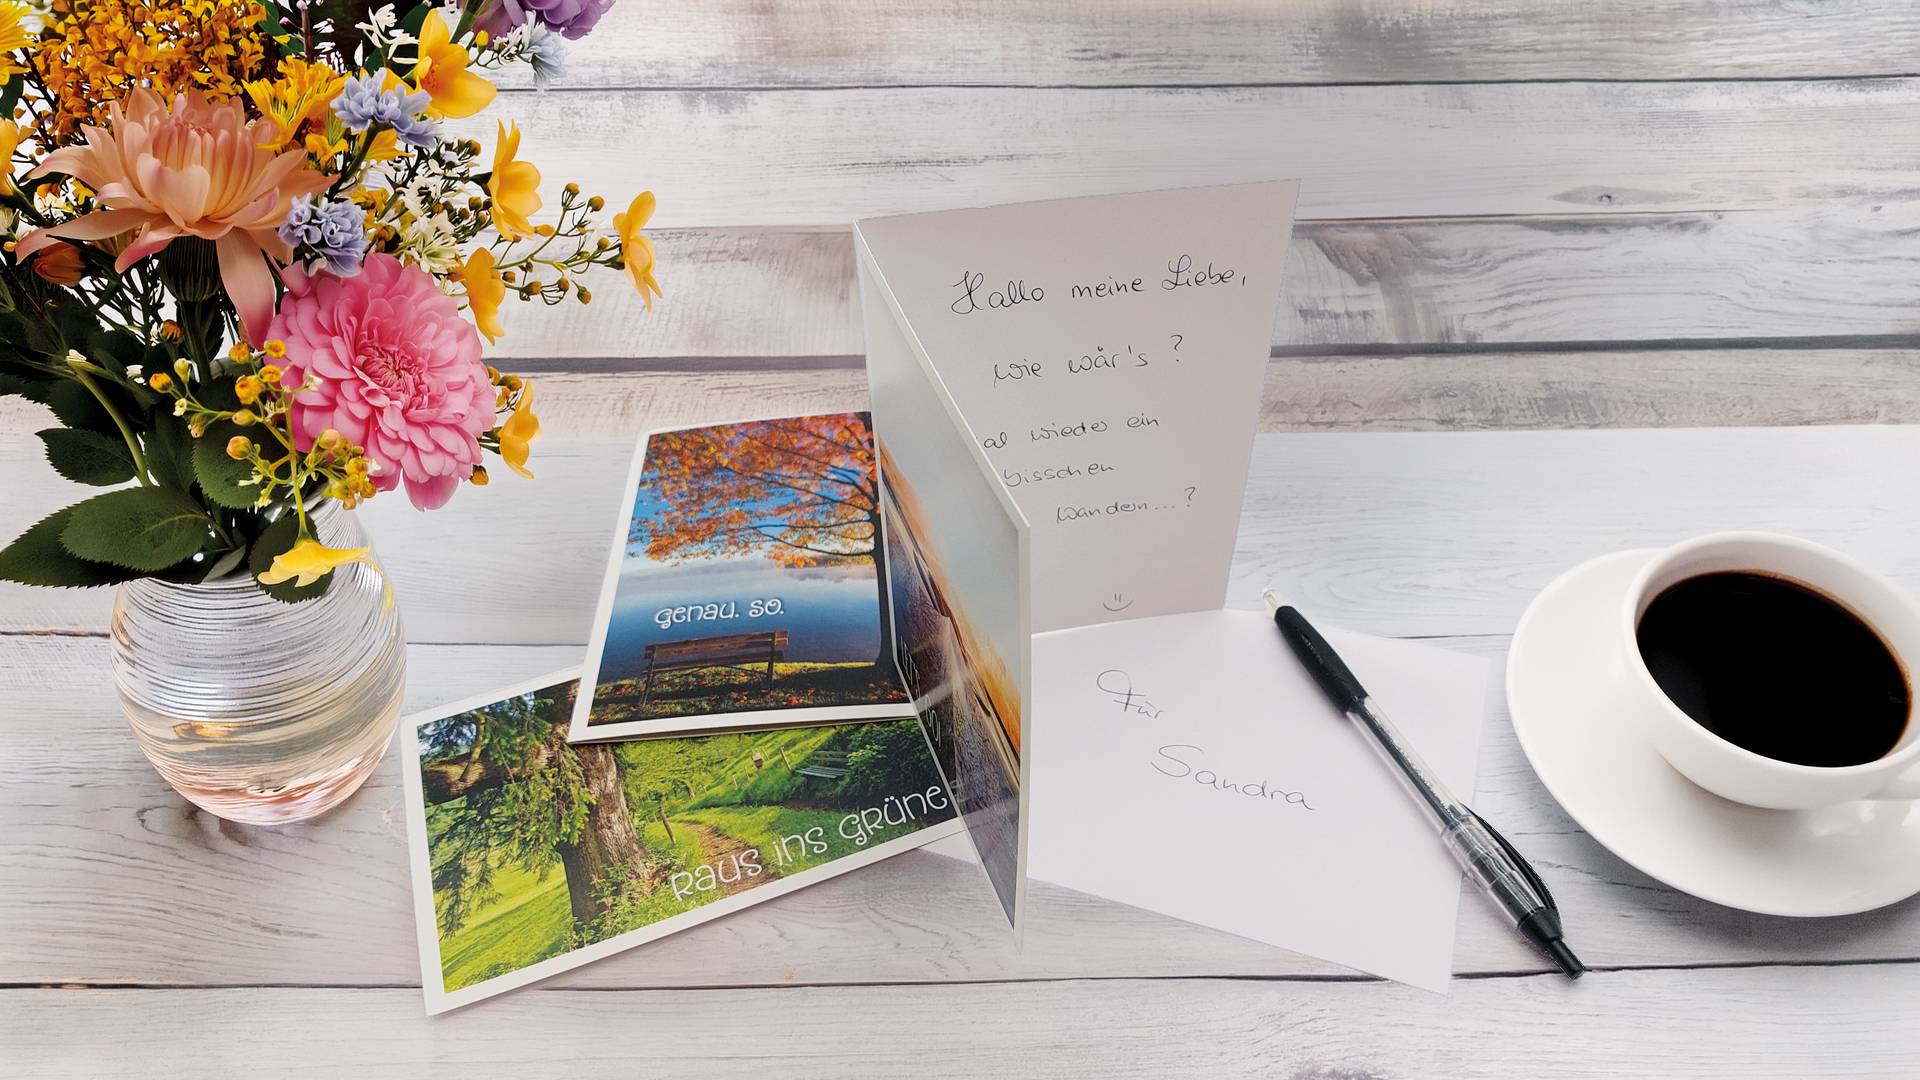 Hallo meine Liebe,
wie wär's?
al wieder ein
bisschen
wandern...?
Für
Sandra
genau. so.
raus ins grüne